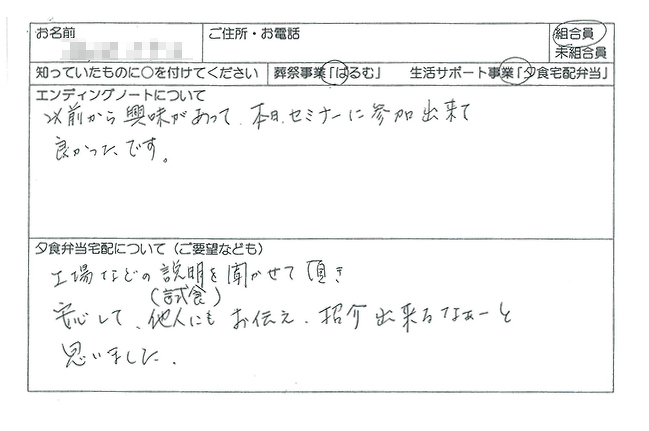 お名前
ご住所・お電話
組合員
未組合員
知っていたものに○を付けてください
葬祭事業「はるむ」 生活サポート事業「夕食宅配弁当」
エンディングノートについて
以前から興味があって、本日、セミナーに参加出来て
良かったです。
夕食弁当宅配について（ご要望なども）
工場などの説明を聞かせて頂き
（試食）
安心して、他人にもお伝え、紹介出来るなぁーと
思いました。